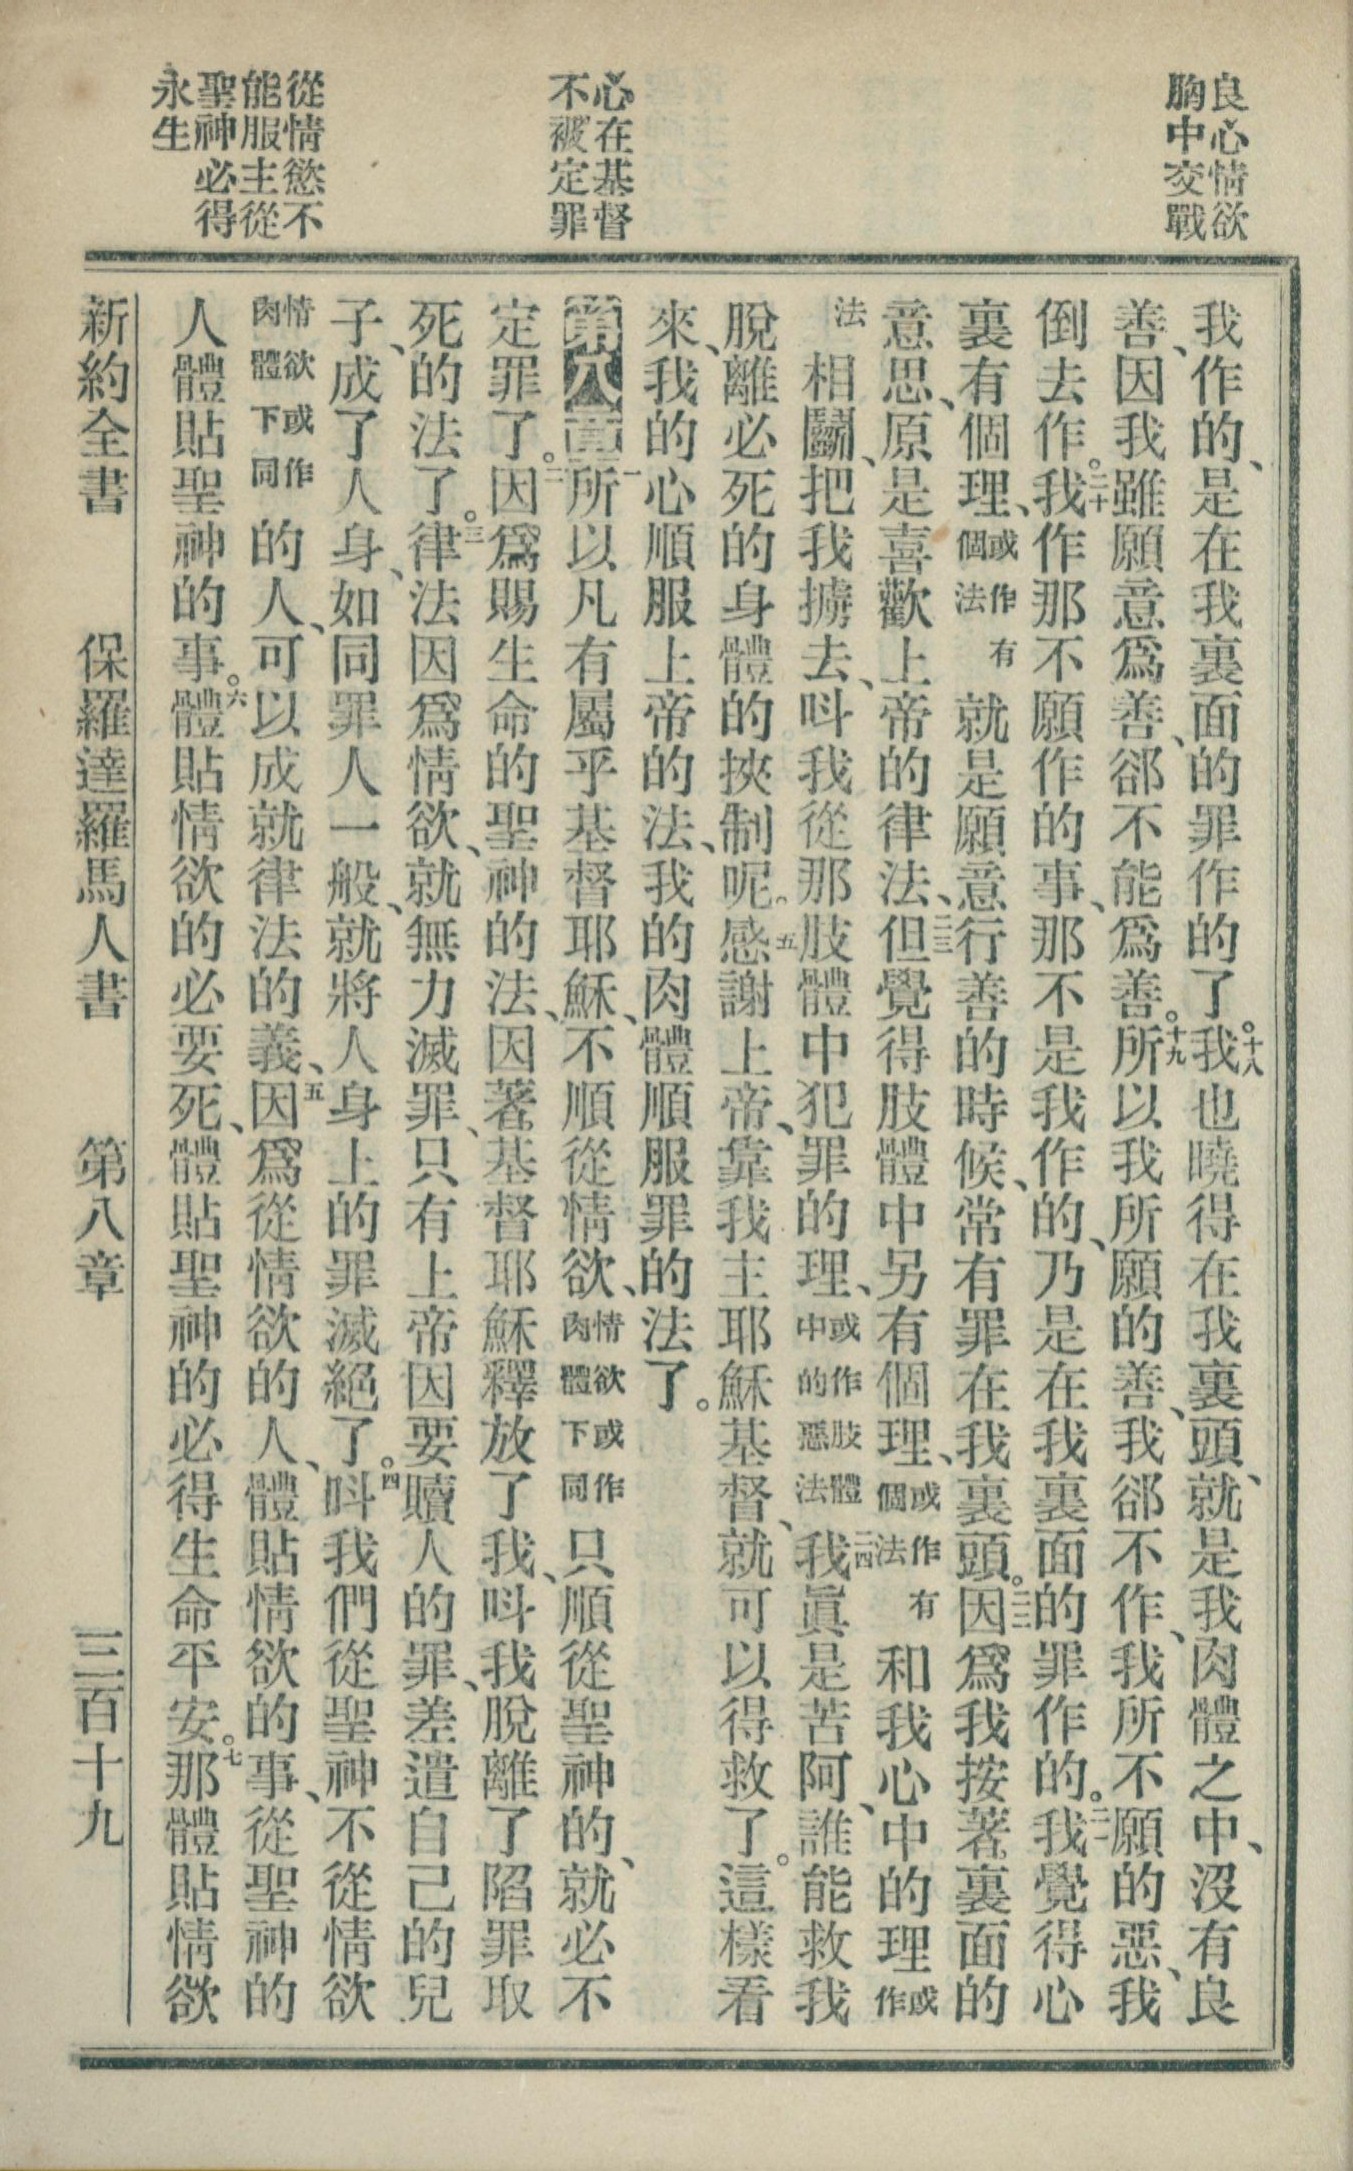 良心情欲
胸中交戰
心在基督
不被定罪
從情慾不
能服主從
聖神必得
永生
我作的、是在我裏面的罪作的了。十八我也曉得在我裏頭、就是我肉體之中、沒有良
善、因我雖願意爲善、郤不能爲善。十九所以我所願的善、我郤不作、我所不願的惡、我
倒去作。二十我作那不願作的事、那不是我作的、乃是在我裏面的罪作的。二一我覺得心
裏有個理、或作有個法就是願意行善的時候、常有罪在我裏頭。二二因爲我按著裏面的
意思、原是喜歡上帝的律法、二三但覺得肢體中另有個理、或作有個法和我心中的理或作
法相鬬、把我擄去、呌我從那肢體中犯罪的理、或作肢體中的惡法二四我眞是苦阿、誰能救我
脫離必死的身體的挾制呢。五感謝上帝、靠我主耶穌基督、就可以得救了。這樣看
來、我的心順服上帝的法、我的肉體順服罪的法了。
第八章一所以凡有屬乎基督耶穌、不順從情欲、情欲或作肉體下同只順從聖神的、就必不
定罪了。二因爲賜生命的聖神的法、因著基督耶穌釋放了我、呌我脫離了陷罪取
死的法了。三律法因爲情欲、就無力滅罪、只有上帝因要贖人的罪、差遣自己的兒
子、成了人身、如同罪人一般、就將人身上的罪滅絕了。四呌我們從聖神不從情欲
情欲或作肉體下同的人、可以成就律法的義、五因爲從情欲的人、體貼情欲的事、從聖神的
人體貼聖神的事。六體貼情欲的必要死、體貼聖神的必得生命平安。七那體貼情欲
新約全書 保羅達羅馬人書 第八章 三百十九